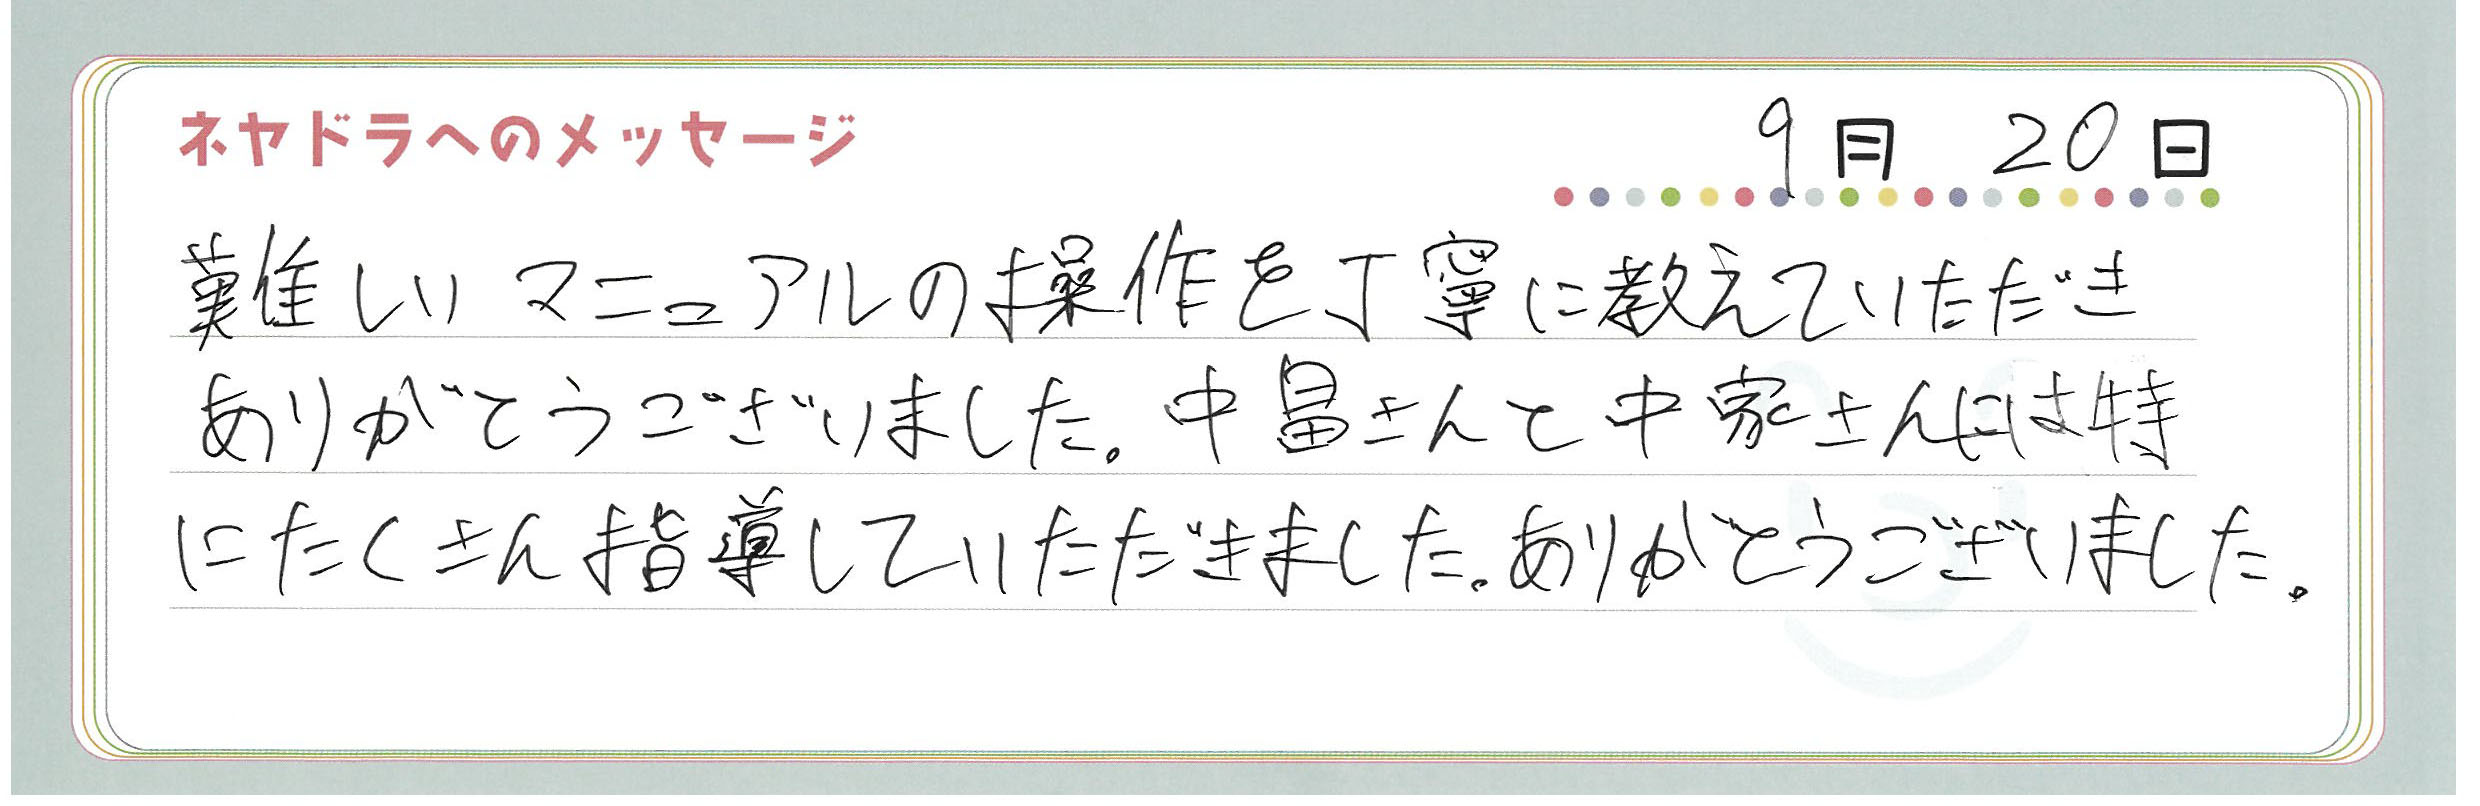 ネヤドラへのメッセージ
9月 20日
難しいマニュアルの操作を丁寧に教えていただき
ありがとうございました。中畠さんと中家さんには特
にたくさん指導していただきました。ありがとうございました。